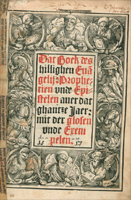 Dat Boek des
hillighen Euā
gelij: Prophe-
tien vnde Epi-
stelen auer dat
ghantze Jaer:
mit der glosen
vnde Exem
pelen.